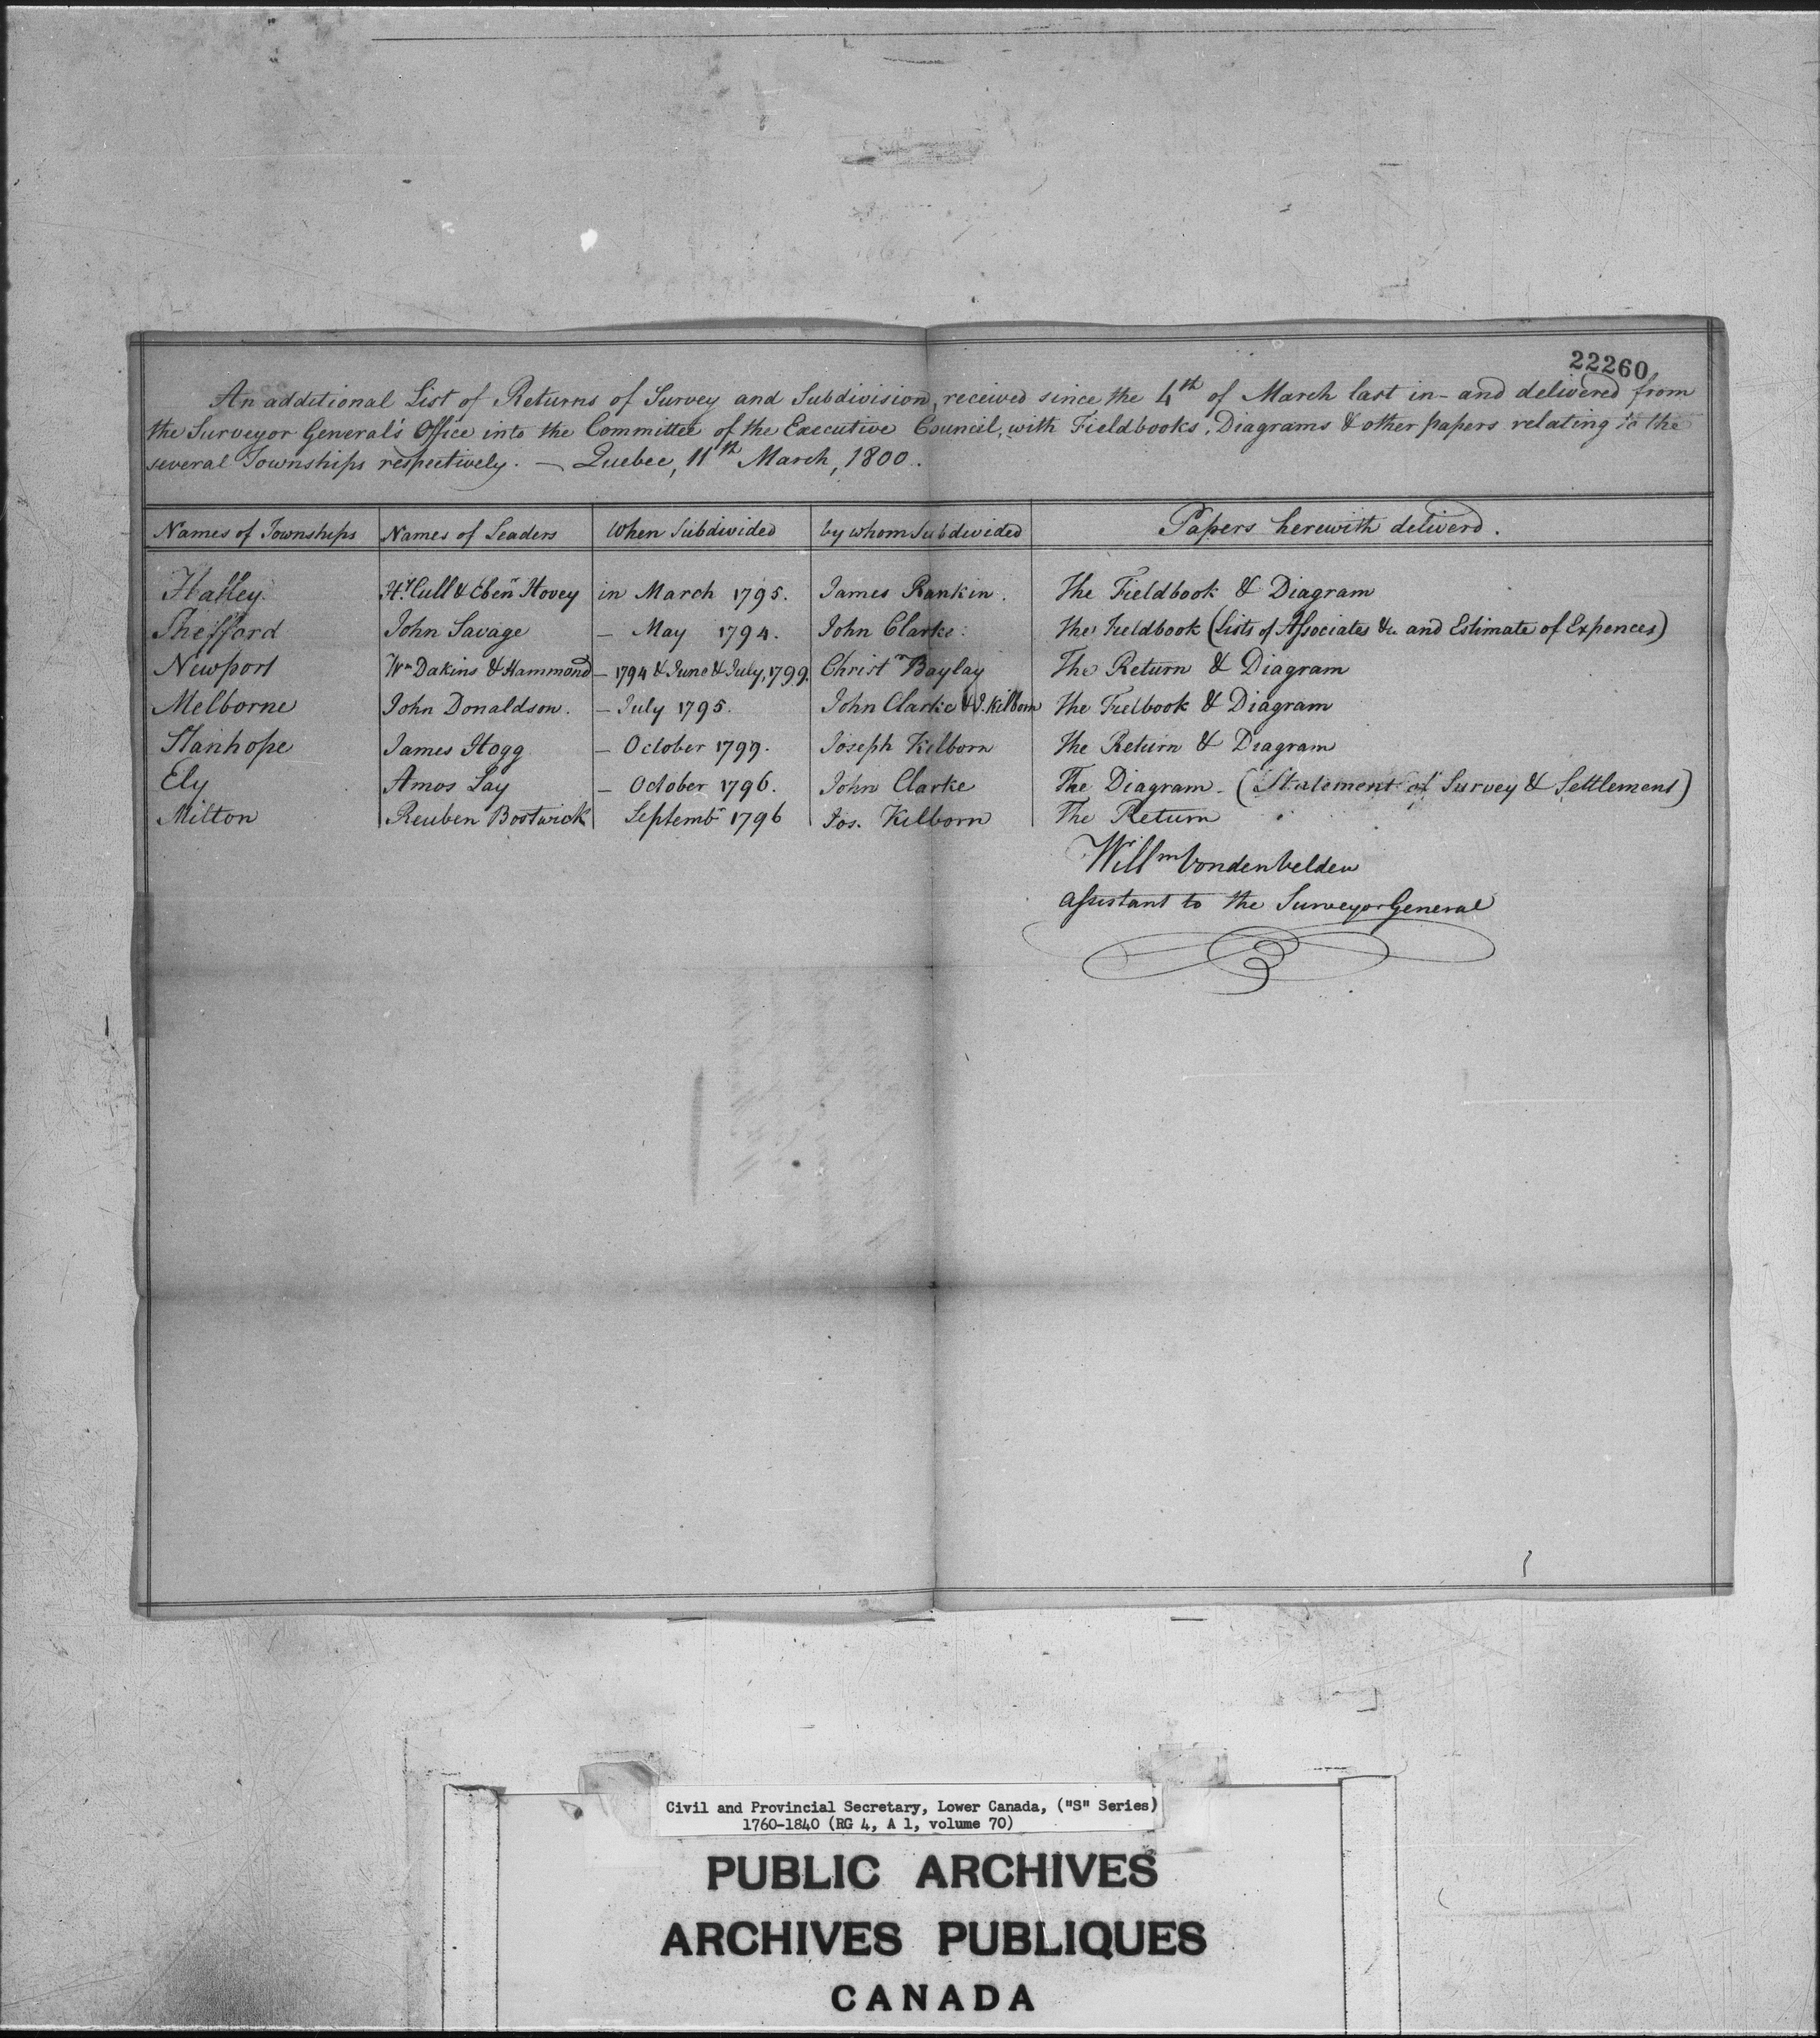 22260
An additional List of Returns of Survey and Subdivision, received since the 4th of March last in- and delivered from
the Surveyor General's Office into the Committee of the Executive Council, with Fieldbooks, Diagrams & other papers relating to the
several Townships respectively. — Quebec, 11th March, 1800.
Names of Townships Names of Leaders When Subdivided by whom Subdivided Papers herewith deliverd.
Hatley Hy. Cull & Eben Hovey in March 1795. James Rankin. The Fieldbook & Diagram
Shefford John Savage — May 1794. John Clarke. The Fieldbook (Lists of Associates &c. and Estimate of Expences)
Newport Wm Dakins & Hammond — 1794 & June & July, 1799. Christr Baylay The Return & Diagram
Melborne John Donaldson. — July 1795. John Clarke & J. Kilborn The Fielbook & Diagram
Stanhope James Hogg — October 1799. Joseph Kilborn The Return & Diagram
Ely Amos Lay — October 1796. John Clarke The Diagram - (Statement of Survey & Settlement)
Milton Reuben Bostwick Septembr 1796 Jos. Kilborn The Return
Willm Vondenvelden
Assistant to the Surveyor General
Civil and Provincial Secretary, Lower Canada, ("S" Series)
1760-1840 (RG 4, A 1, volume 70)
PUBLIC ARCHIVES
ARCHIVES PUBLIQUES
CANADA